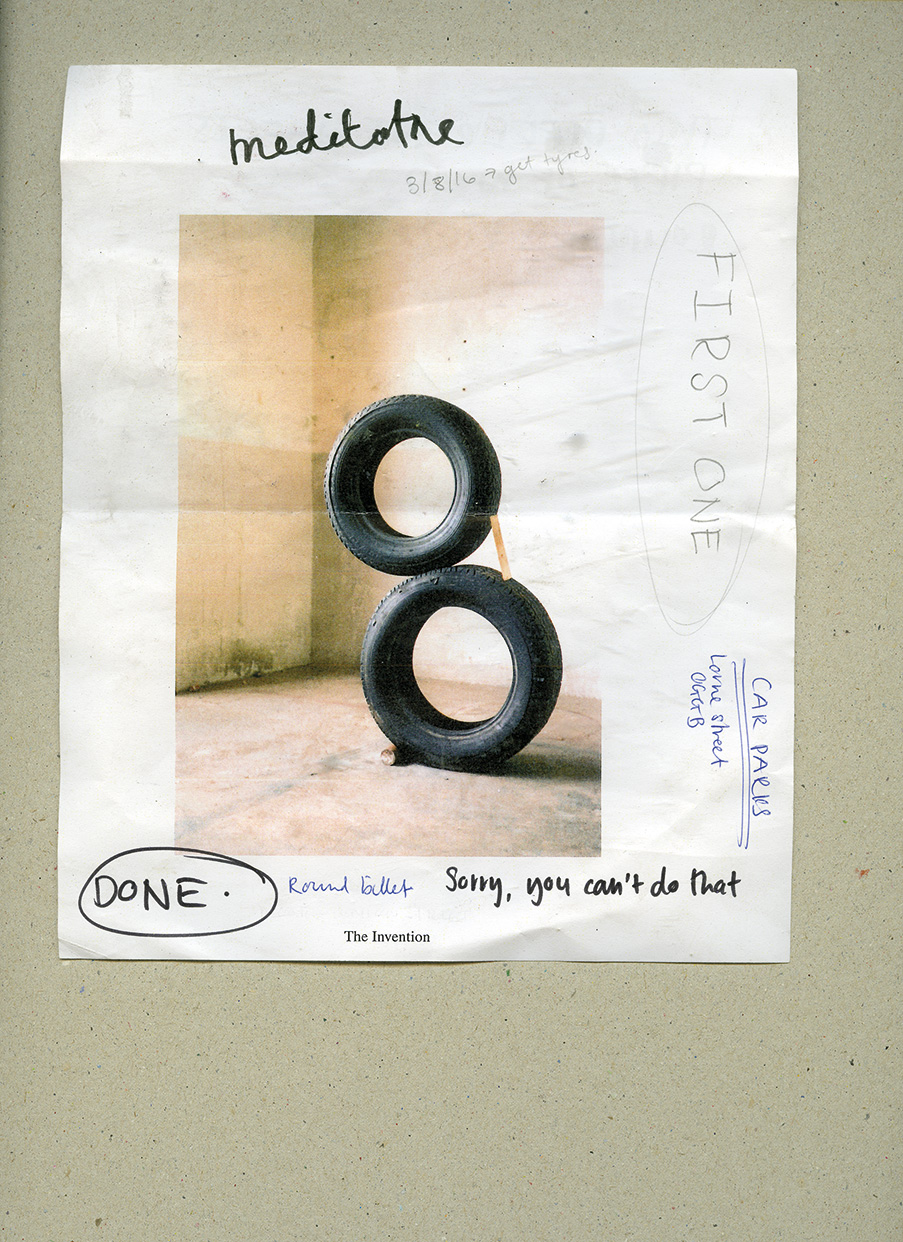 meditative
3/8/16 → get tyres.
FIRST ONE
CAR PARKS
Lorne street
OGGB
DONE.
Round billet
Sorry, you can't do that
The Invention